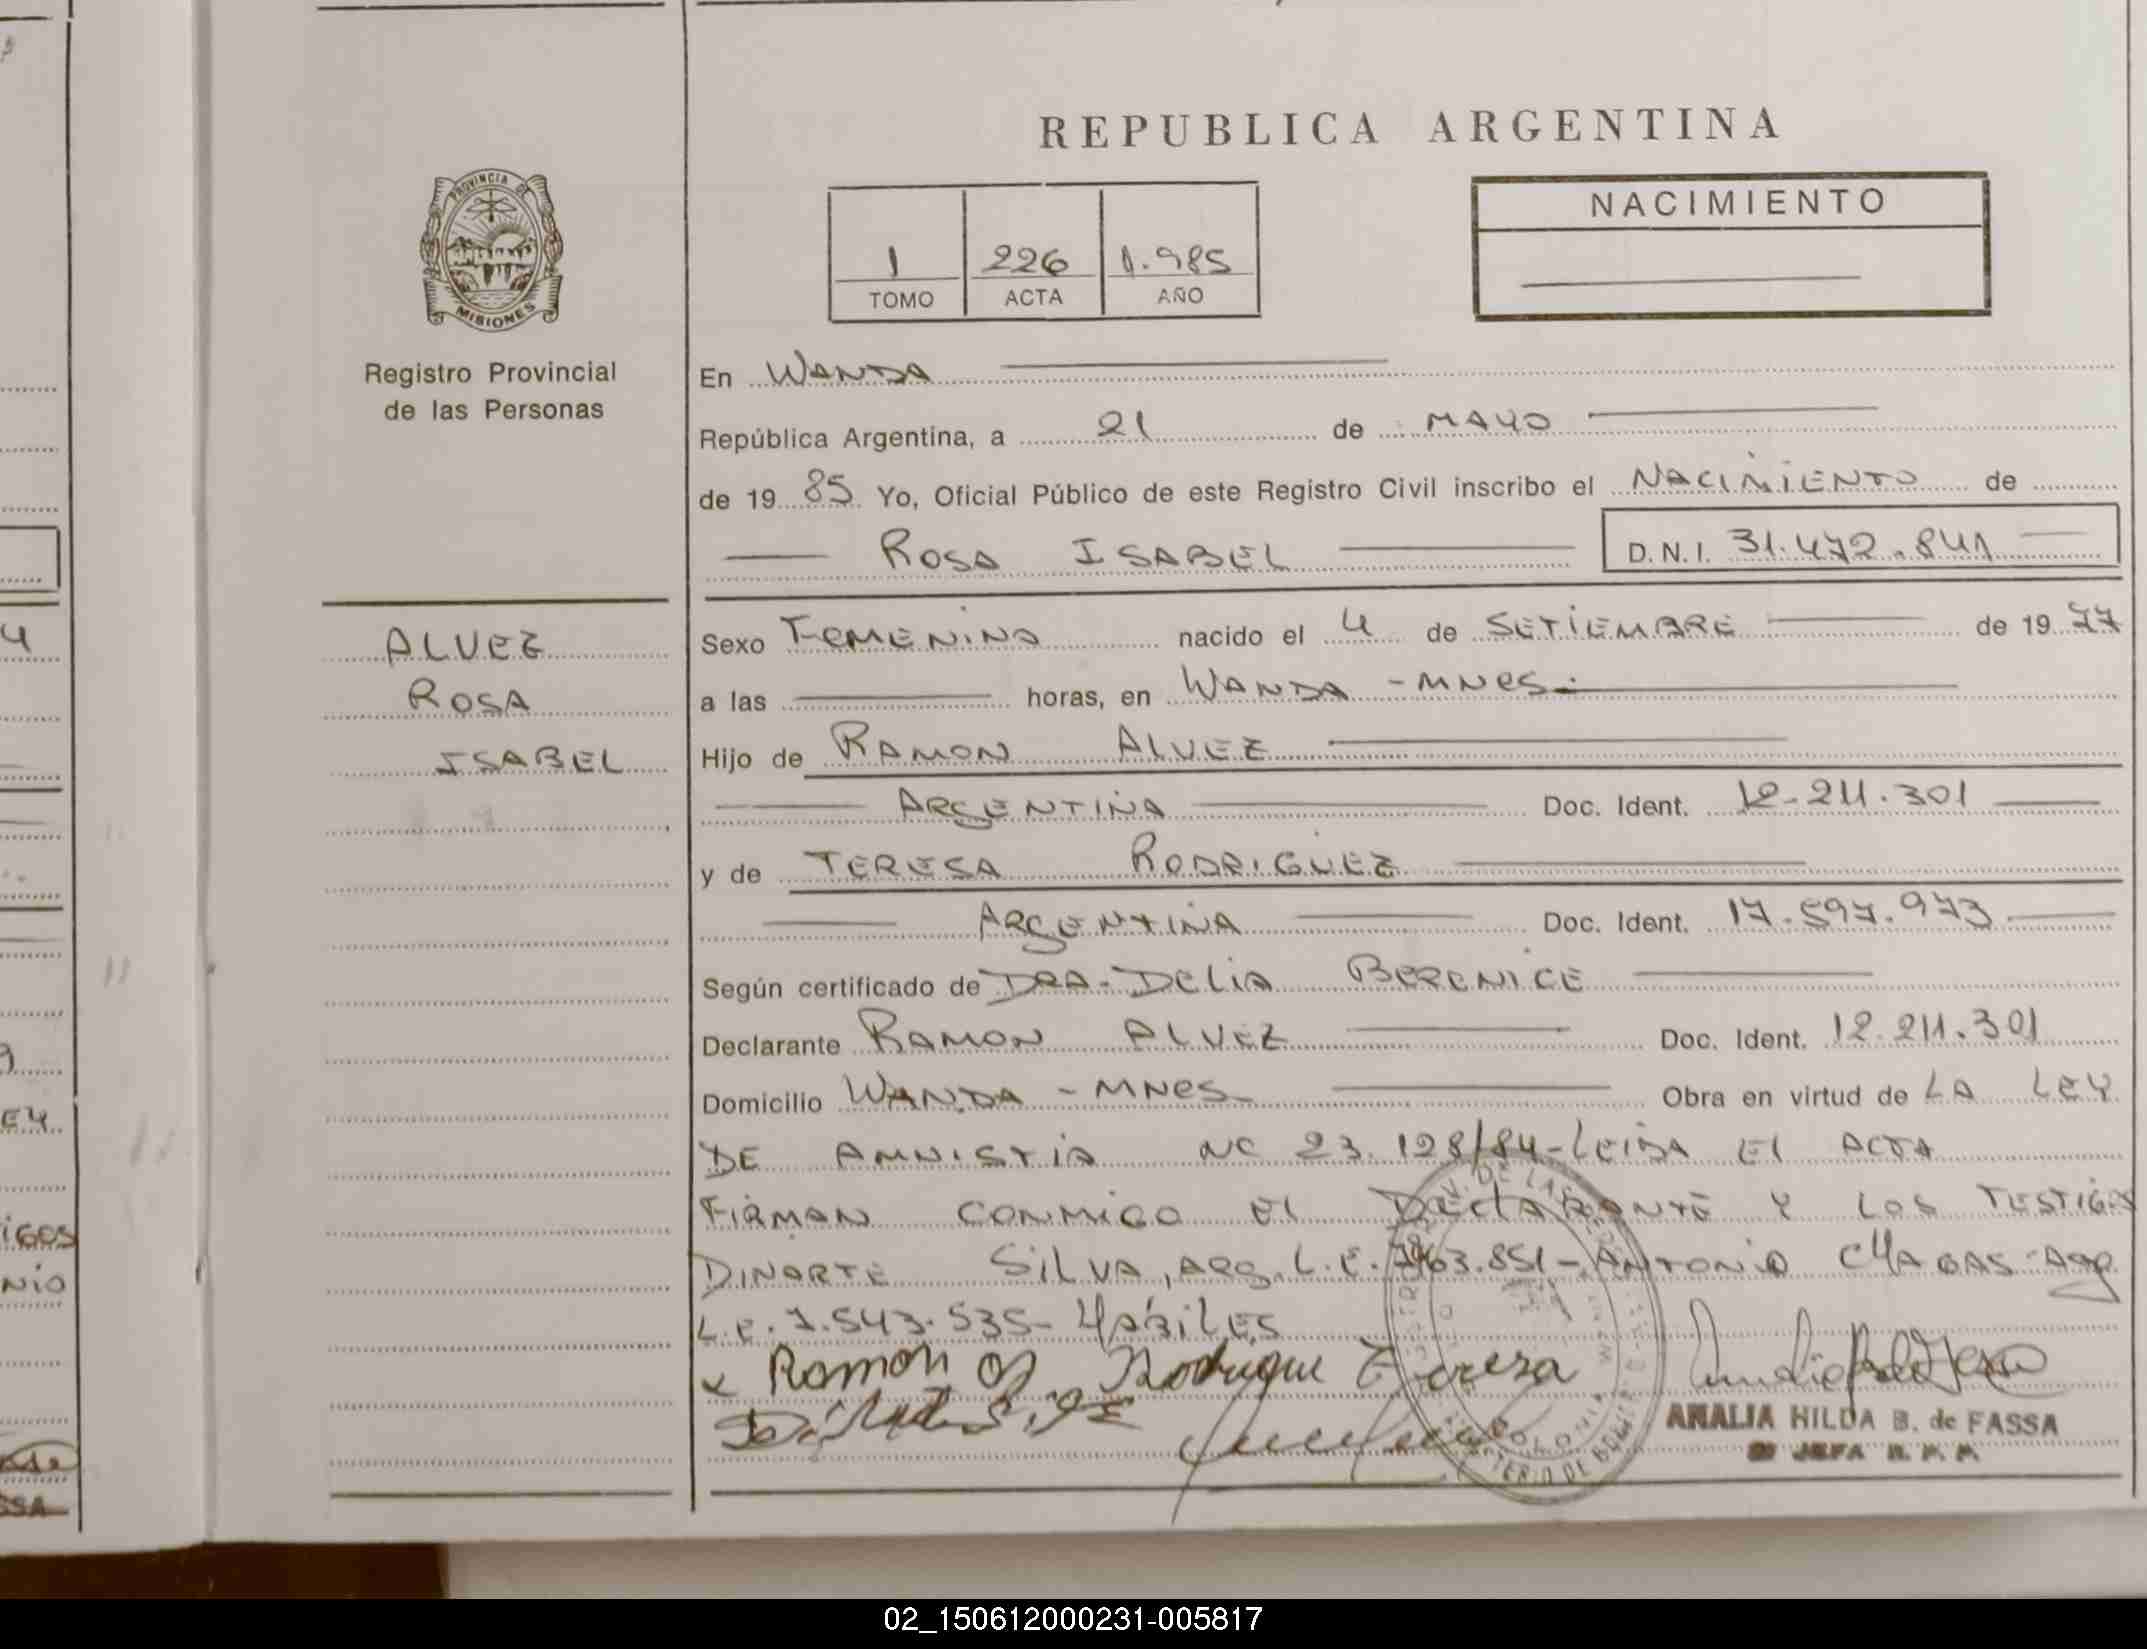 REPUBLICA ARGENTINA
PROVINCIA DE
MISIONES
Registro Provincial
de las Personas
1 226 1.985
TOMO ACTA AÑO
NACIMIENTO
En WANDA
República Argentina, a 21 de MAYO
de 19 85 Yo, Oficial Público de este Registro Civil inscribo el NACIMIENTO de
ROSA ISABEL D.N.I. 31.472.841
ALVEZ
ROSA
ISABEL
Sexo FEMENINO nacido el 4 de SETIEMBRE de 19 77
a las horas, en WANDA - MNES.
Hijo de RAMON ALVEZ
ARGENTINA Doc. Ident. 12.211.301
y de TERESA RODRIGUEZ
ARGENTINA Doc. Ident. 17.597.973
Según certificado de DRA. DELIA BERENICE
Declarante RAMON ALVEZ Doc. Ident. 12.211.301
Domicilio WANDA - MNES Obra en virtud de LA LEY
DE AMNISTIA Nº 23.128/84 - LEIDA EL ACTA
FIRMAN CONMIGO EL DECLARANTE Y LOS TESTIGOS
DINARTE SILVA, ARG. L.E. 63.851 - ANTONIO CHAGAS - ARG
L.E. 7.543.535 - HÁBILES
x Ramon Rodrigue Teresa
ANALIA HILDA B. de FASSA
JEFA R. P. P.
02_150612000231-005817